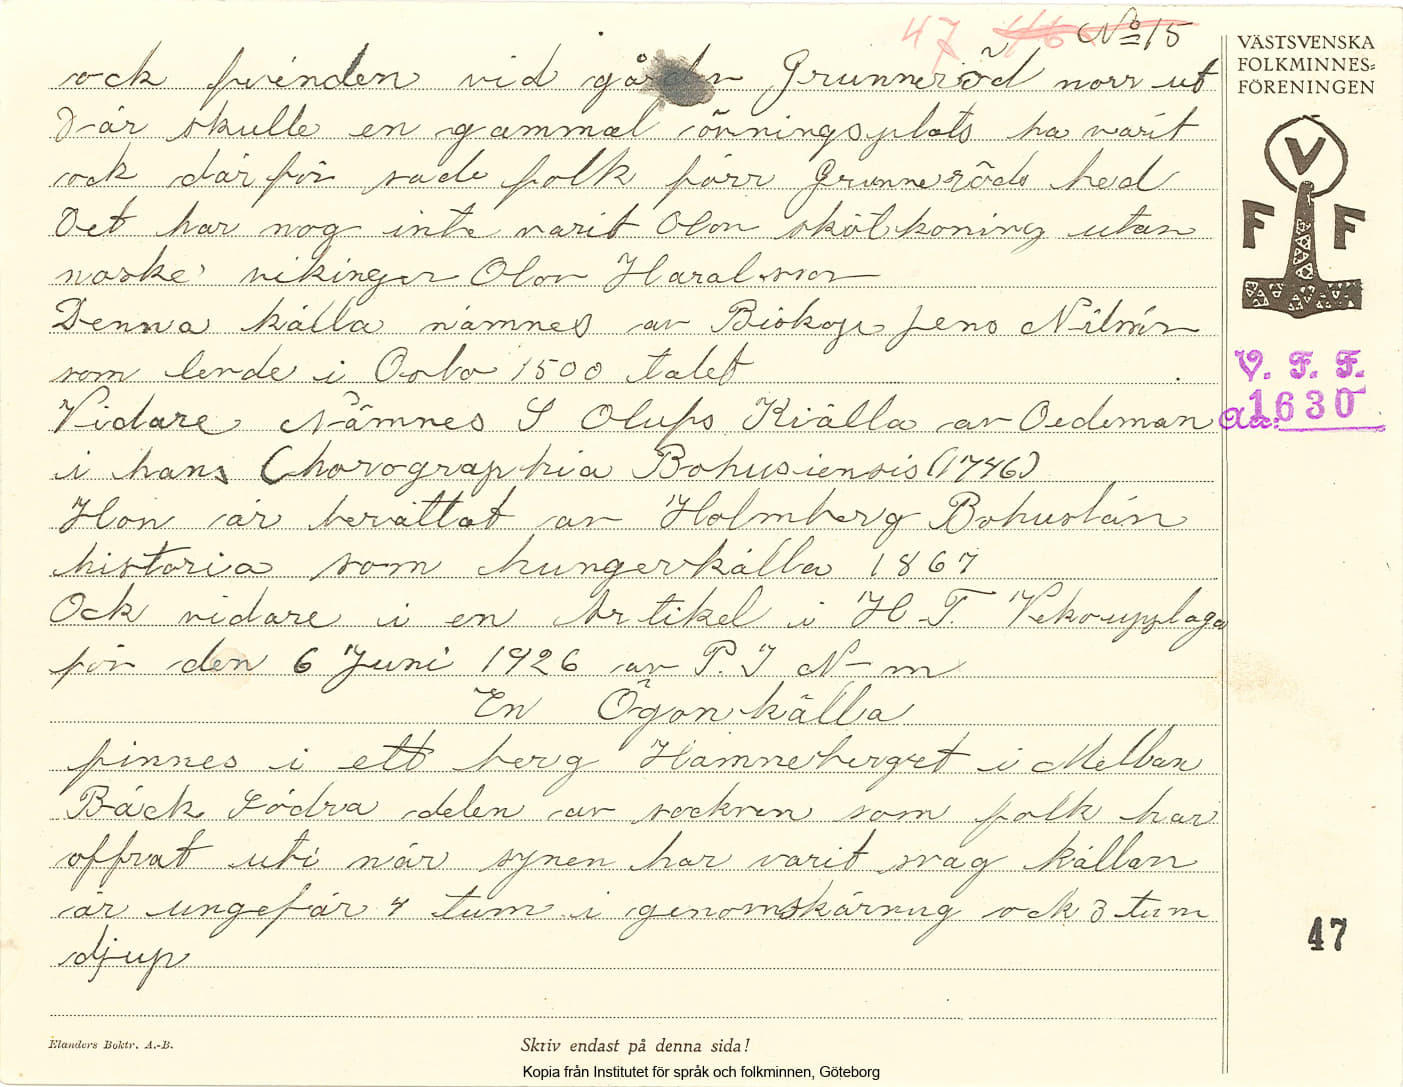 47 116 No 15
ock fviénden vid gården Grunneröd norr ut
Där skulle en gammal övningsplats ha varit
ock därför sade folk förr Grunneröds hed
Det har nog inte varit Olov skötkoning utan
noske vikingen Olov Haralsson
Denna källa nämnes av Biskop Jens Nilsön
som levde i Oslo 1500 talet
Vidare Nämnes S Olufs Kiälla av Oedeman
i hans Chorographia Bohusiensis (1746)
Hon är berättat av Holmberg Bohuslän
historia som hungerkälla 1867
Ock vidare i en Artikel i H.T. Vekoupplaga
för den 6 Juni 1926 av P. I N–m
En Ögonkälla
finnes i ett berg Hamneberget i Mellan
Bäck Södra delen av socknen som folk har
offrat uti när synen har varit svag källan
är ungefär 4 tum i genomskärnug ock 3 tum
djup
VÄSTSVENSKA
FOLKMINNES=
FÖRENINGEN
V
F F
V. F. F.
1630
47
Elanders Boktr. A.-B.
Skriv endast på denna sida!
Kopia från Institutet för språk och folkminnen, Göteborg